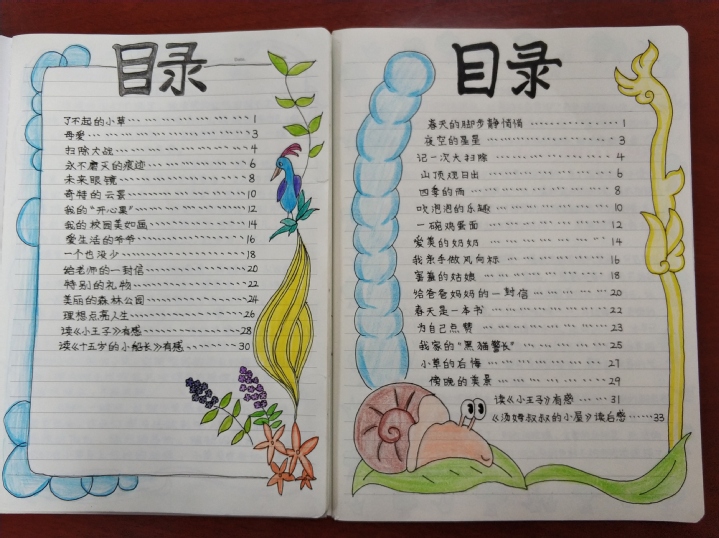 目录
了不起的小草 1
母爱 3
扫除大战 4
永不磨灭的痕迹 6
未来眼镜 8
奇特的云雾 10
我的“开心果” 12
我的校园美如画 14
爱生活的爷爷 16
一个也没少 18
给老师的一封信 20
特别的礼物 22
美丽的森林公园 24
理想点亮人生 26
读《小王子》有感 28
读《十五岁的小船长》有感 30
目录
春天的脚步静悄悄 1
夜空的星星 3
记一次大扫除 4
山顶观日出 6
四季的雨 8
吹泡泡的乐趣 10
一碗鸡蛋面 12
爱美的奶奶 14
我亲手做风向标 16
害羞的姑娘 18
给爸爸妈妈的一封信 20
春天是一本书 22
为自己点赞 23
我家的“黑猫警长” 25
小草的后悔 27
傍晚的美景 29
读《小王子》有感 31
《汤姆叔叔的小屋》读后感 33